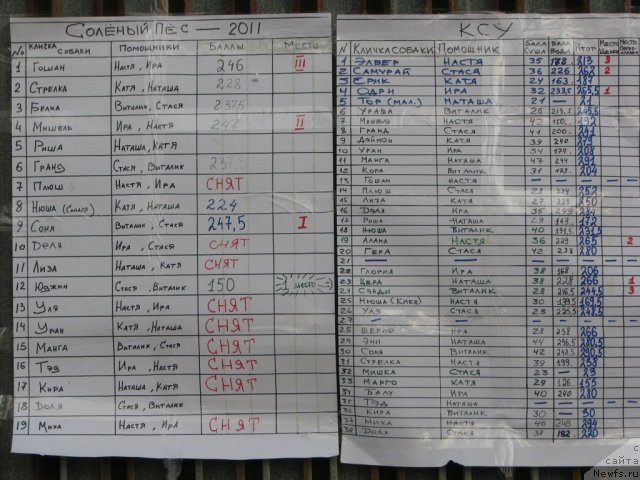 Солёный Пёс — 2011
№ Кличка собаки Помощники Баллы Место
1 Гошан Настя, Ира 246 III
2 Стрелка Катя, Наташа 228
3 Белка Виталик, Стася 237,5
4 Мишель Ира, Настя 247 II
5 Риша Наташа, Катя
6 Гранд Стася, Виталик
7 Плюш Настя, Ира СНЯТ
8 Нюша Катя, Наташа 224
9 Соня Виталик, Стася 247,5 I
10 Доля Ира, Стася СНЯТ
11 Лиза Наташа, Катя СНЯТ
12 Южин Стася, Виталик 150 1 место
13 Уля Настя, Ира СНЯТ
14 Уран Катя, Наташа СНЯТ
15 Манга Виталик, Стася СНЯТ
16 Тэд Ира, Настя СНЯТ
17 Кира Наташа, Катя СНЯТ
18 Доля Стася, Виталик
19 Миха Настя, Ира СНЯТ
КСУ
N Кличка собаки Помощник Балл суша Балл вода Итог Место
1 Элвер Настя 35 178 213 3
2 Самурай Стася 36 226 262 2
3 Ерик Катя 24 163 187
4 Одри Ира 32 233,5 265,5 1
5 Тор (мал.) Наташа 21 — 21
6 Виталик 26 219,5 245,5
7 Настя 42 150
8 Гранд Стася 41 200 241
9 Катя 39 240
10 Уран Ира 34 174 208
11 Манга Наташа 47 244 291
12 Кора Виталик 31 173 204
13 Гошан Настя — — —
14 Плюш Стася 28 224 252
15 Лиза Катя 27 223 250
16 Доля Ира 35 249 284
17 Риша Наташа 29 143 172
18 Нюша Виталик 40 191,5 231,5
19 Алана Настя 36 229 265 2
20 Гера Стася 42 238 280
21 — — — — —
22 Глория Ира 38 168 206
23 Наташа 38 228 266 1
24 Сэрди Виталик 28 216,5 244,5 3
25 Нюша (Киев) Настя 30 139,5 169,5
26 Уля Стася 23 225,5 248,5
27 — — — — —
28 Ира 28 238 266
29 Энчи Наташа 44 236,5 280,5
30 Соня Виталик 42 248,5 290,5
31 Стрелка Настя 39 199 238
32 Мишка Стася 23 — 23
33 Марго Катя 29 126 155
34 Балу Ира 40 240 280
35 Тэд Наташа — — —
36 Кира Виталик 30 — 30
37 Миха Настя 46 248 294
38 Доля Стася 38 182 220
с сайта
Newfs.ru